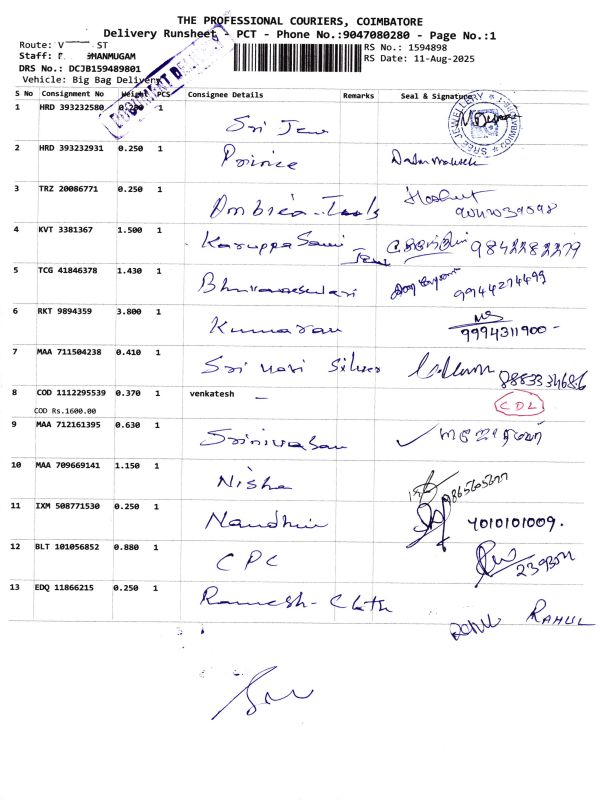 THE PROFESSIONAL COURIERS, COIMBATORE
Delivery Runsheet - PCT - Phone No.:9047080280 - Page No.:1
Route: V ST
Staff: MANMUGAM
DRS No.: DCJB159489801
Vehicle: Big Bag Delivery
RS No.: 1594898
RS Date: 11-Aug-2025
S No Consignment No Weight PCS Consignee Details Remarks Seal & Signature
1 HRD 393232580 0.200 1 Sri Jew
SREE JEWELLERY COIMBATORE
2 HRD 393232931 0.250 1 Poirnice
3 TRZ 20086771 0.250 1 Ambica Tools
4 KVT 3381367 1.500 1 Karuppasami Jew 9842282279
5 TCG 41846378 1.430 1 Bhuvaneswari 9944274499
6 RKT 9894359 3.800 1 Kumaran 9994311900
7 MAA 711504238 0.410 1 Sri Silver 8883334686
8 COD 1112295539 0.370 1 venkatesh - CDL
COD Rs.1600.00
9 MAA 712161395 0.630 1 Srinivasan
10 MAA 709669141 1.150 1 Nisha
11 IXM 508771530 0.250 1 Nandhini 7010101009.
12 BLT 101056852 0.880 1 CPC
13 EDQ 11866215 0.250 1 Ramesh - Cloth RAHUL